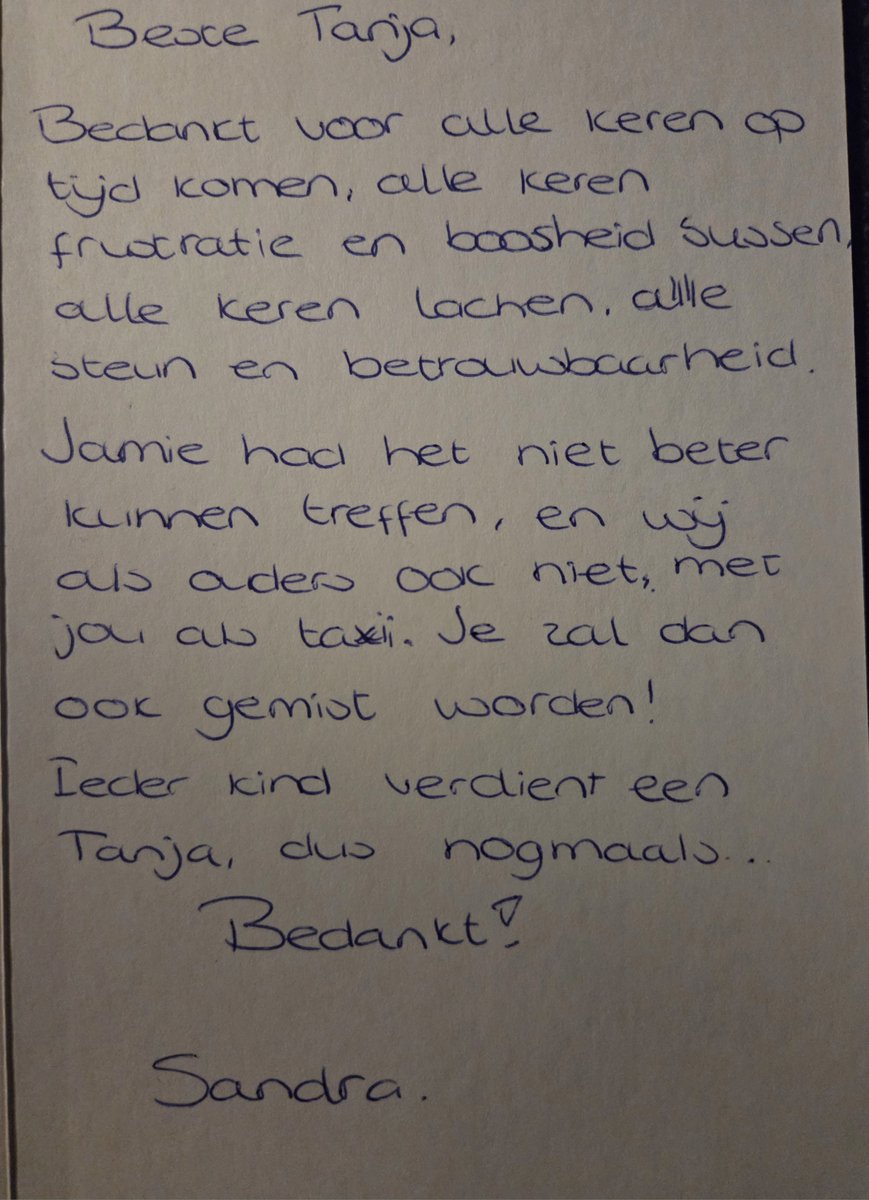 Beste Tanja,
Bedankt voor alle keren op
tijd komen, alle keren
frustratie en boosheid sussen,
alle keren lachen, alle
steun en betrouwbaarheid.
Jamie had het niet beter
kunnen treffen, en wij
als ouders ook niet, met
jou als taxi. Je zal dan
ook gemist worden!
Ieder kind verdient een
Tanja, dus nogmaals...
Bedankt!
Sandra.